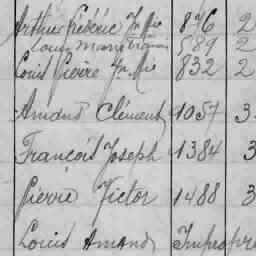 Arthur Frédéric Fr Mie 876 2
Louis Marie 589 2
Louis Pierre Fr Mie 832 2
Amand Clément 1057 3
François Joseph 1384 3
Pierre Victor 1488 3
Louis Amand Impropre